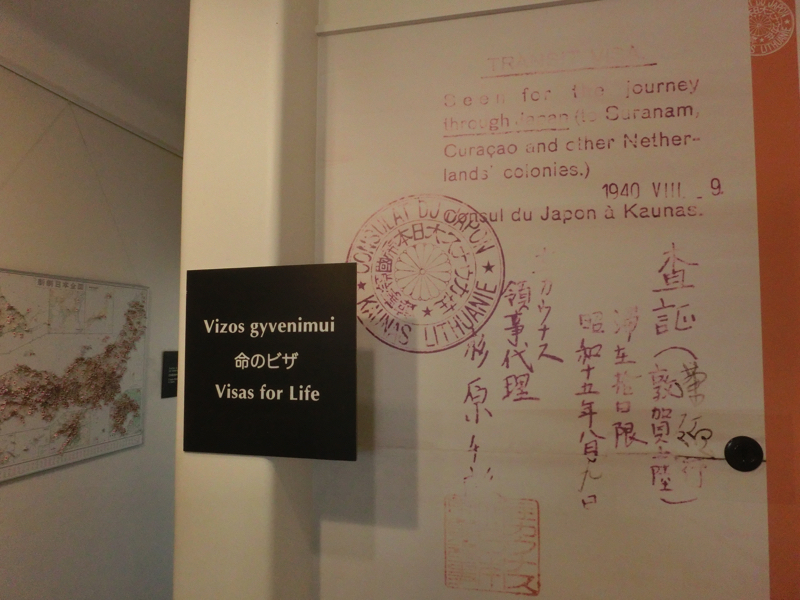 TRANSIT VISA
Seen for the journey
through Japan (to Suranam,
Curaçao and other Nether-
lands' colonies.)
1940 VIII 9.
Consul du Japon à Kaunas.
CONSULAT DU JAPON
KAUNAS LITHUANIE
査証(敦賀上陸)
滞在拾日限
昭和十五年八月九日
カウナス
領事代理
杉原千
Vizos gyvenimui
命のビザ
Visas for Life